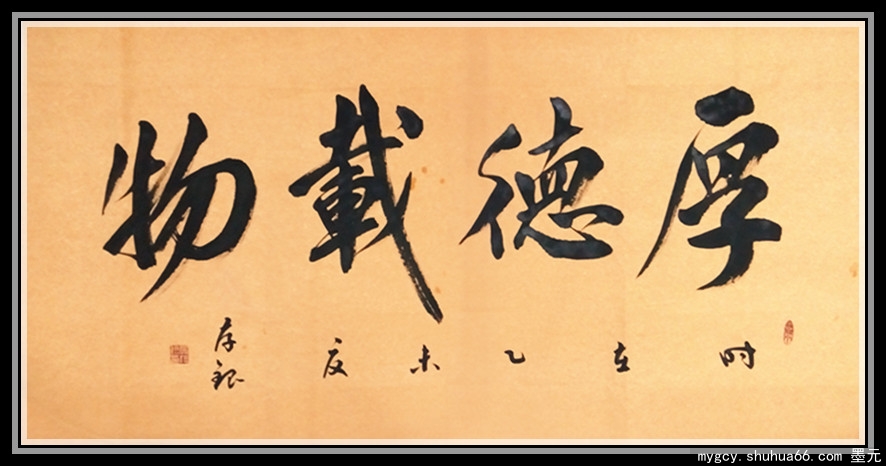 厚德載物
时在乙未夏
存银
mygcy.shuhua66.com 墨元